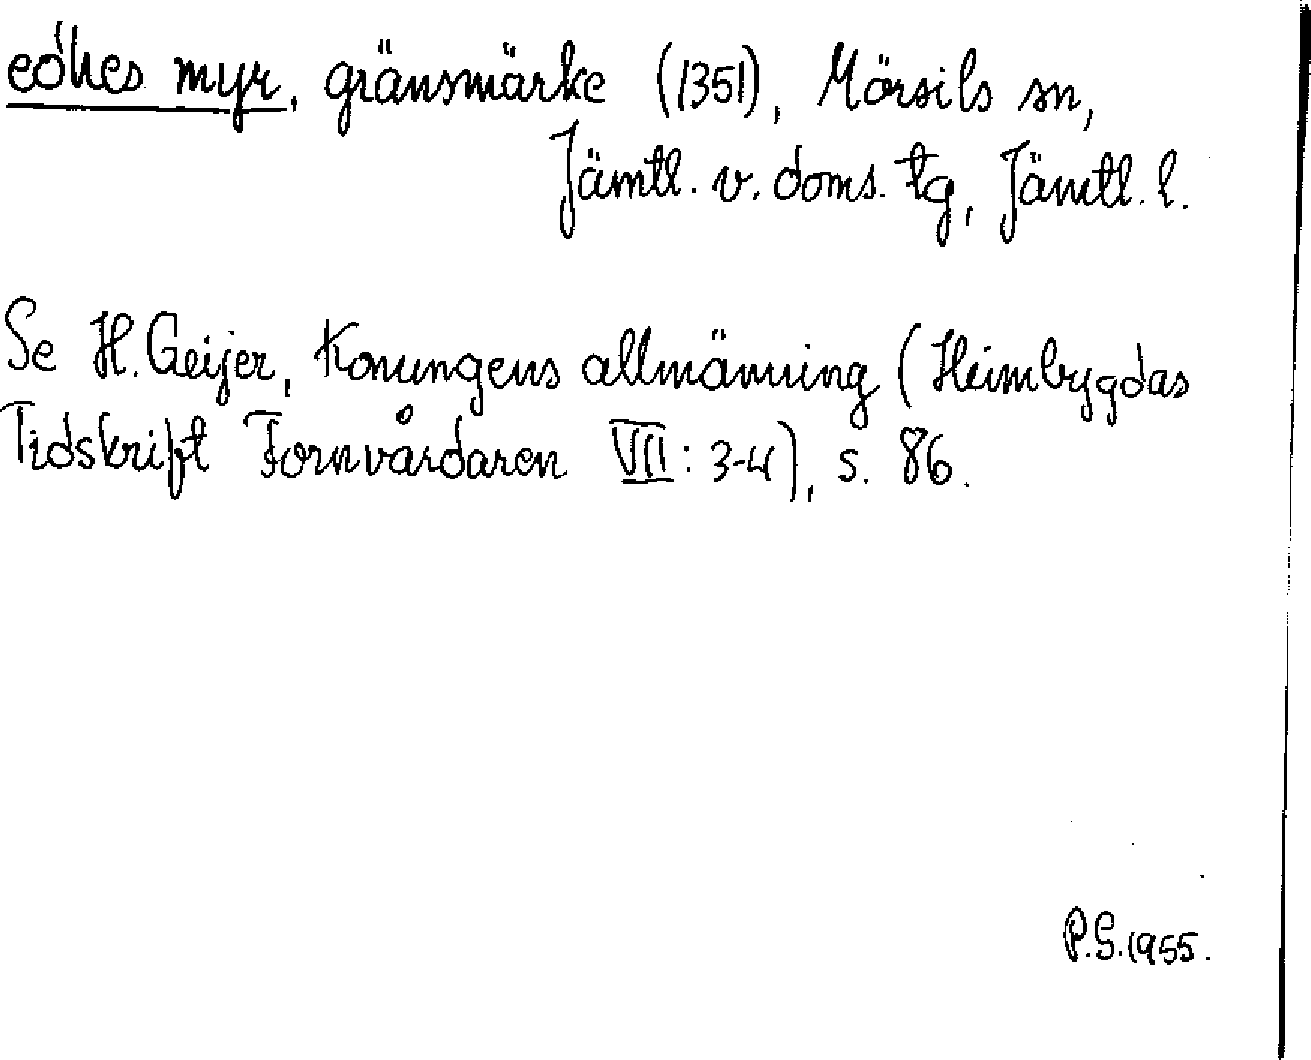 eókes myr, gränsmärke (1351), Mörsils sn,
Jämtl. v. doms. tg, Jämtl. l.
Se H. Geijer, Konungens allmänning (Heimbygdas
Tidskrift Fornvårdaren VII: 3-4), s. 86.
P.G. 1955.